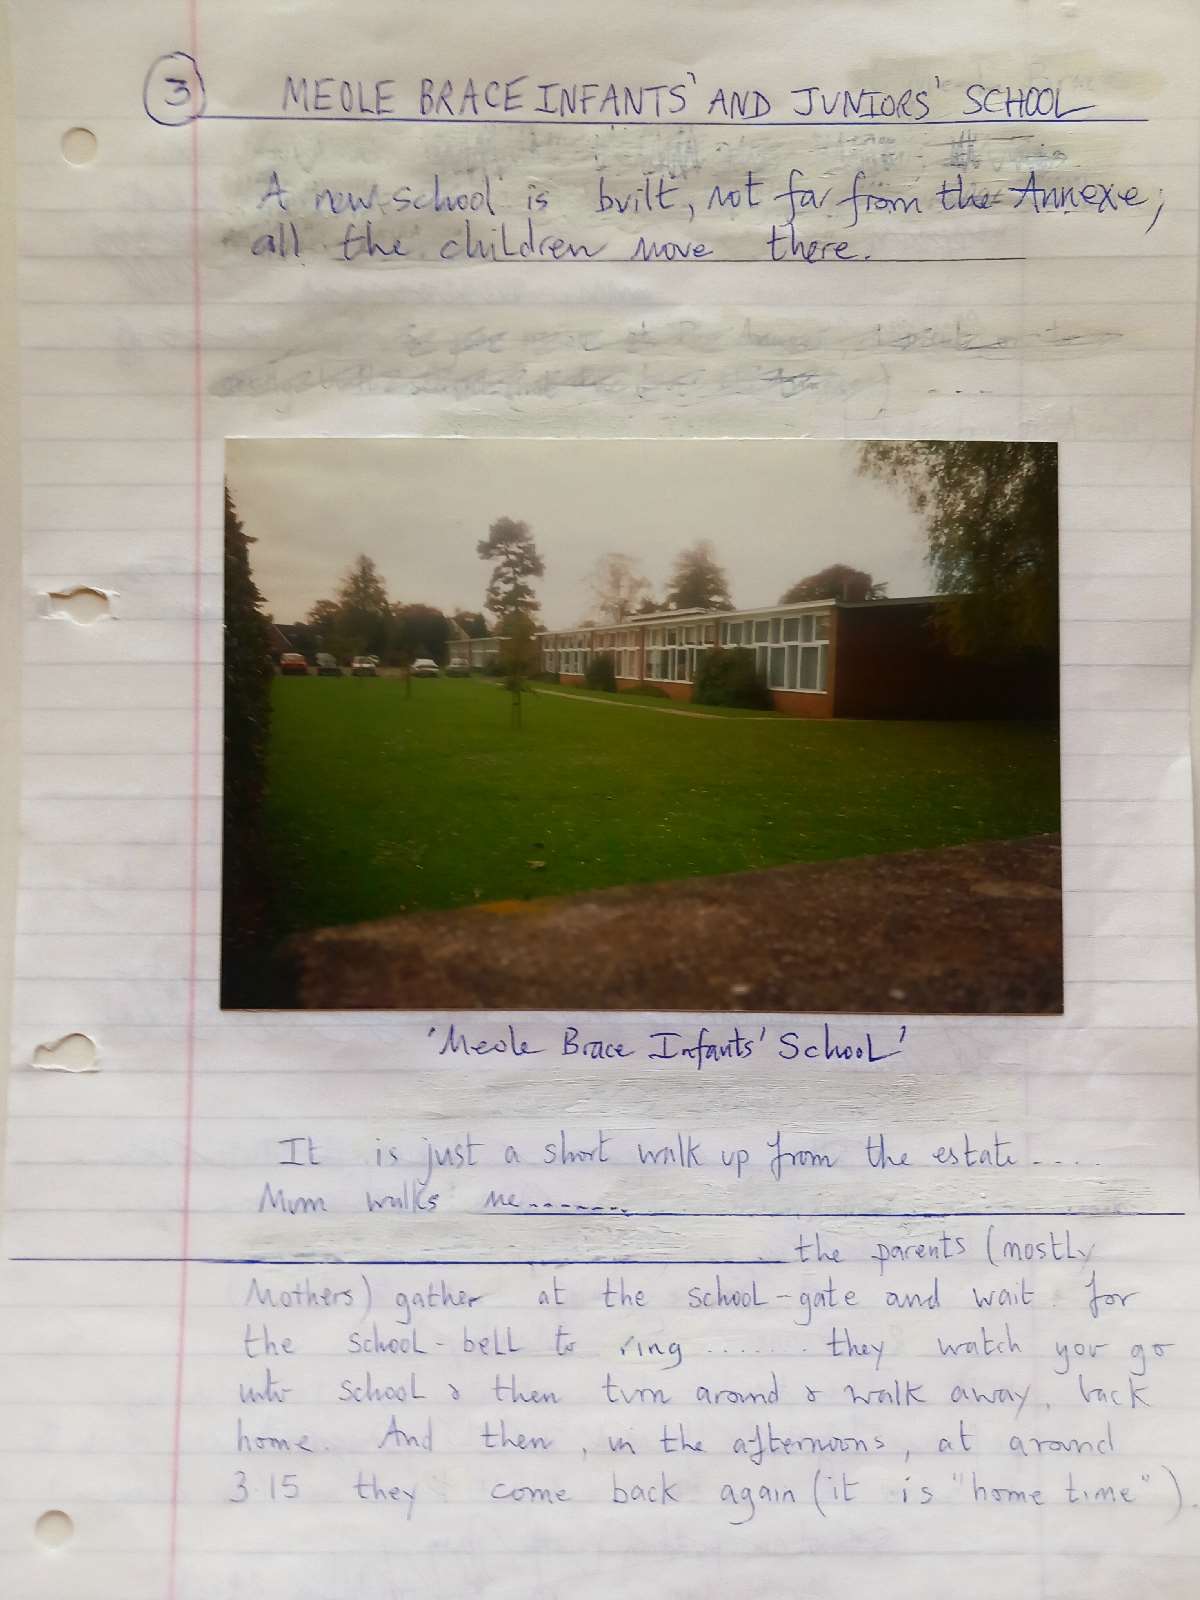 3 MEOLE BRACE INFANTS' AND JUNIORS' SCHOOL
A new school is built, not far from the Annexe;
all the children move there.
'Meole Brace Infants' School'
It is just a short walk up from the estate....
Mum walks me.......
the parents (mostly
Mothers) gather at the school-gate and wait for
the school-bell to ring ....... they watch you go
into school & then turn around & walk away, back
home. And then, in the afternoons, at around
3.15 they come back again (it is "home time").